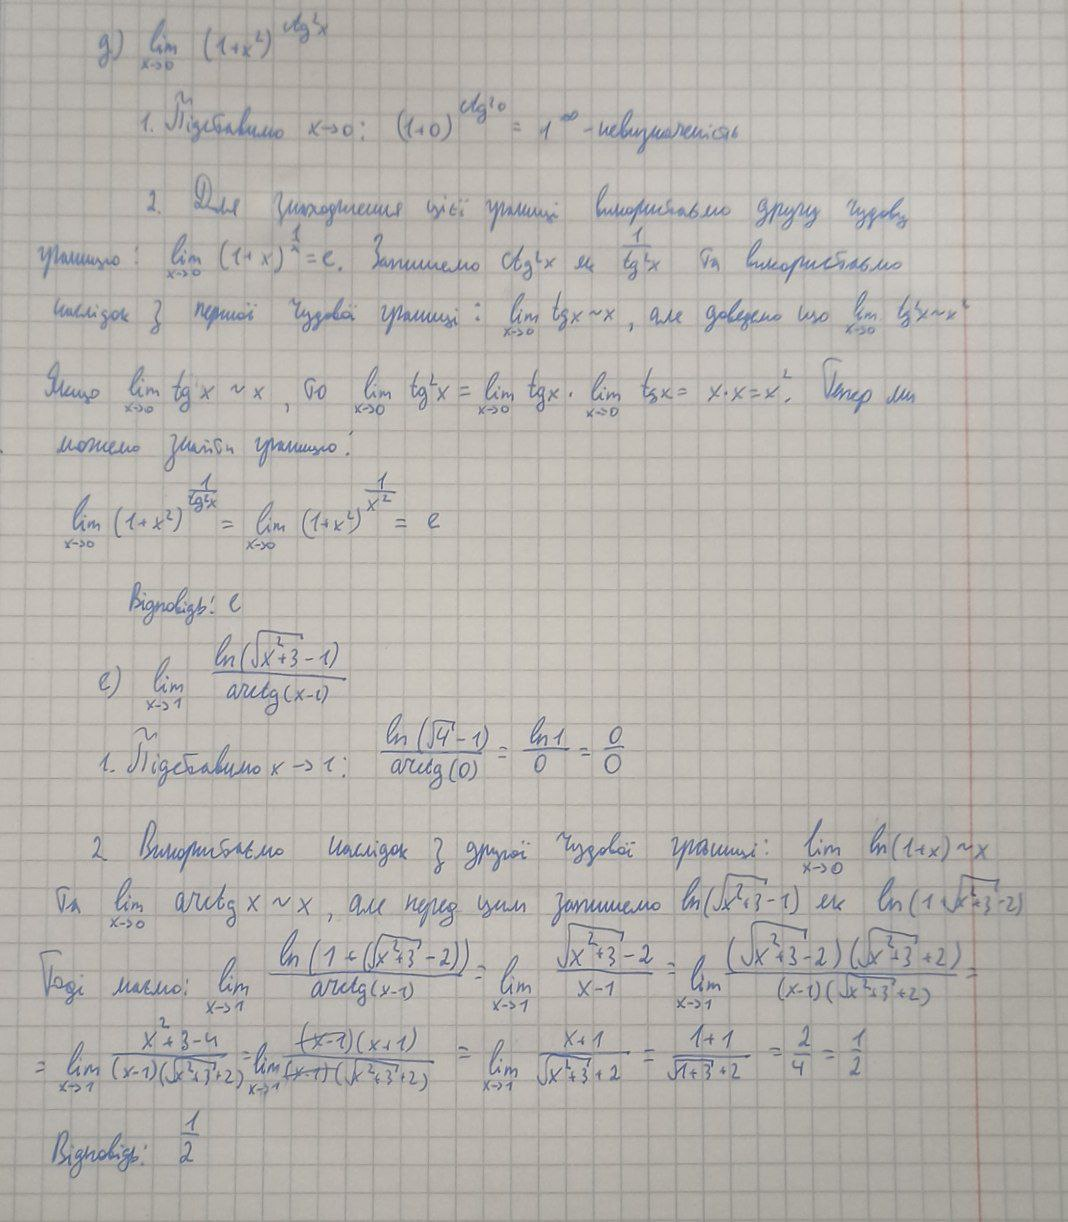 д) lim x→0 (1+x²)^(ctg²x)
1. Підставимо x→0: (1+0)^(ctg²0) = 1^∞ - невизначеність
2. Для знаходження цієї границі використаємо другу чудову
границю: lim x→0 (1+x)^(1/x) = e. Запишемо ctg²x як 1/tg²x та використаємо
наслідок з першої чудової границі: lim x→0 tgx ~ x, але доведемо що lim x→0 tg²x ~ x²
Якщо lim x→0 tg x ~ x, то lim x→0 tg²x = lim x→0 tgx · lim x→0 tgx = x·x = x². Тепер ми
можемо знайти границю:
lim x→0 (1+x²)^(1/tg²x) = lim x→0 (1+x²)^(1/x²) = e
Відповідь: e
е) lim x→1 ln(√(x²+3) - 1) / arctg(x-1)
1. Підставимо x→1: ln(√4 - 1) / arctg(0) = ln1 / 0 = 0/0
2. Використаємо наслідок з другої чудової границі: lim x→0 ln(1+x) ~ x
та lim x→0 arctg x ~ x, але перед цим запишемо ln(√(x²+3) - 1) як ln(1+√(x²+3) - 2)
Тоді маємо: lim x→1 ln(1+(√(x²+3) - 2)) / arctg(x-1) = lim x→1 (√(x²+3) - 2) / (x-1) = lim x→1 (√(x²+3) - 2)(√(x²+3) + 2) / (x-1)(√(x²+3) + 2) =
= lim x→1 (x²+3-4) / (x-1)(√(x²+3) + 2) = lim x→1 (x-1)(x+1) / (x-1)(√(x²+3) + 2) = lim x→1 (x+1) / (√(x²+3) + 2) = (1+1) / (√(1+3) + 2) = 2/4 = 1/2
Відповідь: 1/2